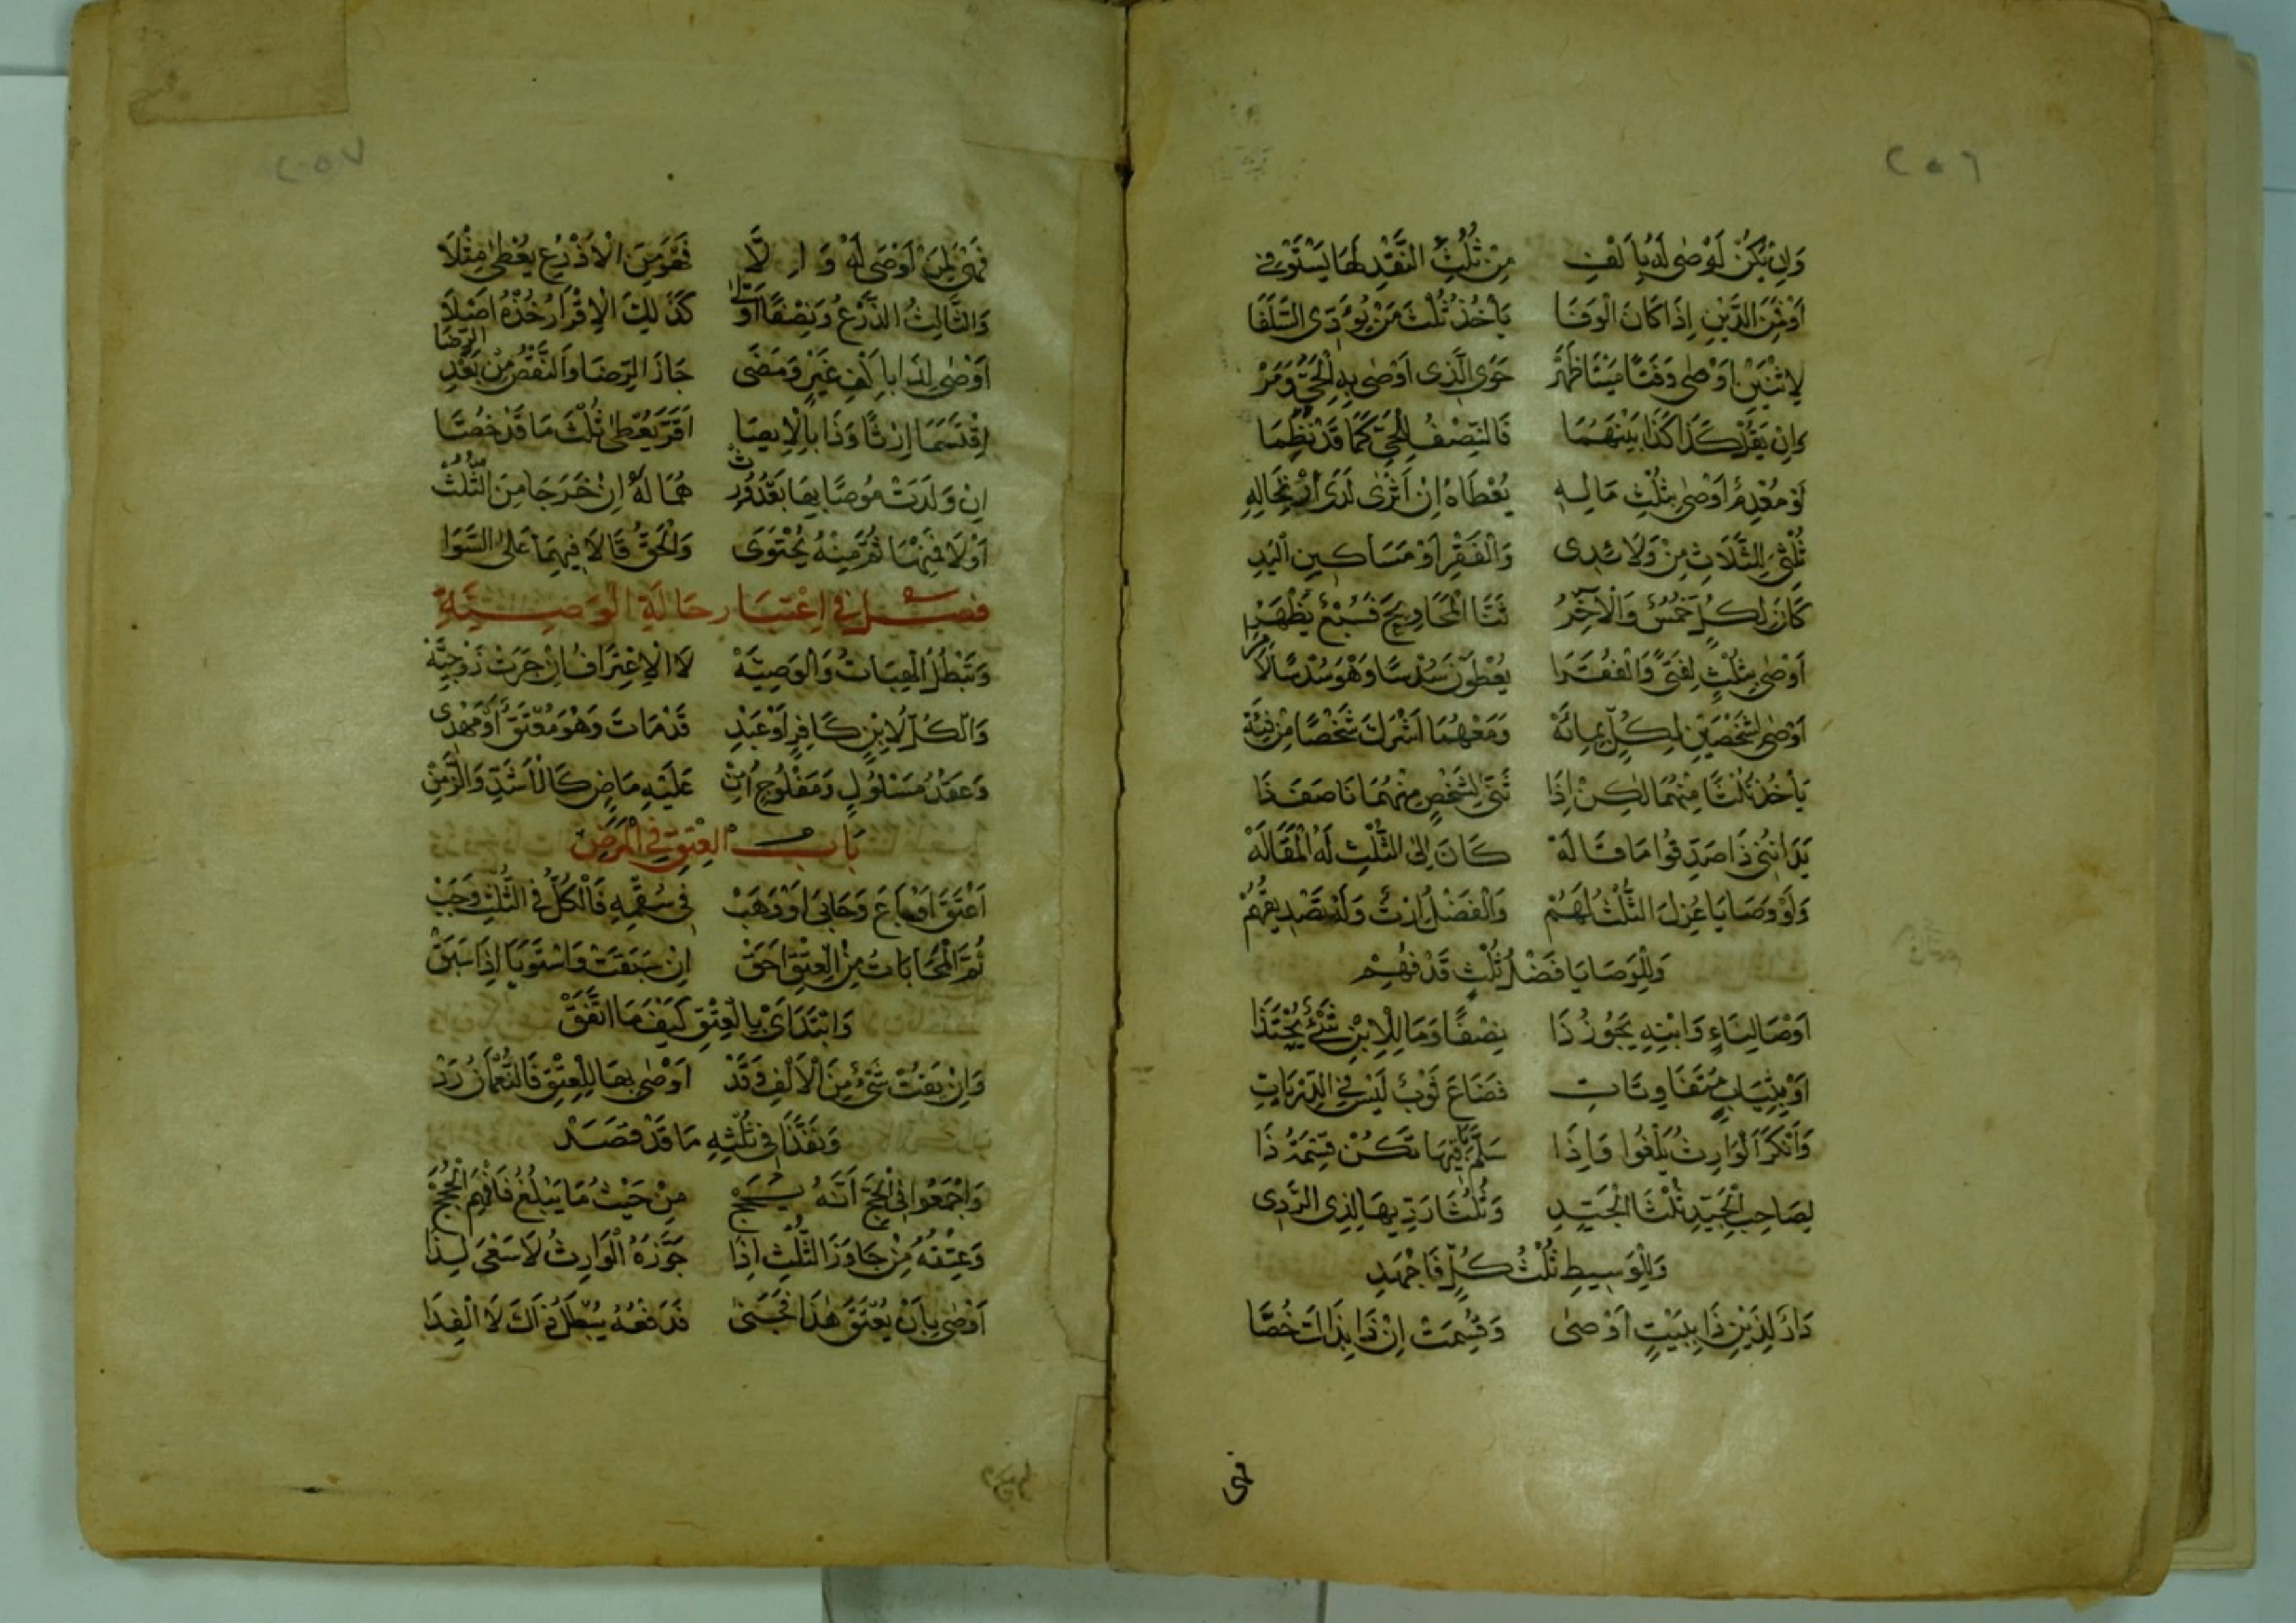 ٢٥٦
وَاِنْ يَكُنْ اَوْصٰى لَهُ بِاَلْفِ مِنْ ثُلُثِ النَّقْدِ لَهَا يَسْتَوْفِى
اَوْ ثَمَنَ الدَّيْنِ اِذَا كَانَ الْوَفَا يَأْخُذُ ثُلْثَ مَنْ يُؤَدِّى السَّلَفَا
لِاثْنَيْنِ اَوْصٰى وَفَتًا مَيْتًا ظَهَرْ حَوَى الَّذِى اَوْصٰى بِهِ الْحَيُّ وَمَرْ
وَاِنْ يَقُلْ كَذَا كَذَا بَيْنَهُمَا فَالنِّصْفُ لِلْحَيِّ كَمَا قَدْ نُظِمَا
لَوْ مُعْدِمٌ اَوْصٰى بِثُلْثِ مَالِهِ يُعْطَاهُ اِنْ اَثْرٰى لَدَى ارْتِحَالِهِ
ثُلْثِى لِلثَّلَاثِ مِنْ وَلَائِدِى وَالْفَقْرِ اَوْ مَسَاكِينِ الْيَدِ
كَانَ لِكُلٍّ خُمُسٌ وَالْآخِرُ ثَنَا الْمَحَاوِيجَ فَسُبْعٌ يَظْهَرُ
اَوْصٰى بِثُلْثٍ لِفَتًى وَالْفُقَرَا يُعْطَوْنَ سُدْسًا وَهْوَ سُدْسًا لَا مِرَا
اَوْصٰى لِشَخْصَيْنِ لِكُلٍّ بِمِائَهْ وَمَعْهُمَا اَشْرَكَ شَخْصًا مِنْ فِئَهْ
يَأْخُذُ ثُلْثًا مِنْهُمَا لٰكِنْ اِذَا ثَنَّى لِشَخْصٍ مِنْهُمَا نَاصَفَ ذَا
يَدَانِنِى ذَا صَدِّقُوا مَا قَالَهْ كَانَ اِلَى الثُّلْثِ لَهُ الْمَقَالَهْ
وَلَوْ وَصَايَا عُزِلَ الثُّلْثُ لَهُمْ وَالْفَضْلُ اِرْثٌ وَلْيُصَدِّقْهُمْ
وَلِلْوَصَايَا فَضْلُ ثُلْثٍ قَدْ فُهِمْ
اَوْصَا لِنَاءٍ وَابْنِهِ يَجُوزُ ذَا نِصْفًا وَمَا لِلْاِبْنِ شَىْءٌ يُحْتَذَا
اَوْ بِثِيَابٍ مُتَفَاوِتَاتِ فَضَاعَ ثَوْبٌ لَيْسَ فِى الدِّرْيَاتِ
وَاَنْكَرَ الْوَارِثُ يَلْغُوا وَاِذَا سَلَّمَ بَاقِيهَا تَكُنْ قِسْمَةُ ذَا
لِصَاحِبِ الْجَيِّدِ ثُلْثَا الْجَيِّدِ وَثُلُثَا رَدِيِّهَا لِذِى الرَّدِى
وَلِلْوَسِيطِ ثُلْثُ كُلٍّ فَاجْهَدِ
دَارٌ لِذَيْنِ ذَا بِبَيْتٍ اَوْصٰى وَقُسِمَتْ اِنْ ذَا بِذَاتَ خُصَّا
فهى
٢٥٧
فَهْىَ لِمَنْ اَوْصَى لَهْ وَاِلَّا فَهْوَ مِنَ الْاَذْرُعِ يُعْطٰى مِثْلَا
وَالثَّالِثُ الذَّرْعُ وَنِصْفًا اَوْلٰى كَذٰلِكَ الْاِقْرَارُ خُذْهُ اَصْلَا
اَوْصٰى لِذَا بِاَلْفِ غَيْرٍ وَمَضَى جَازَ الرِّضَا وَالنَّقْضُ مِنْ بَعْدِ الرِّضَا
اِقْتَسَمَا اِرْثًا وَذَا بِالْاِيصَا اَقَرَّ يُعْطٰى ثُلْثَ مَا قَدْ خُصَّا
اِنْ وَلَدَتْ مُوصًا بِهَا بَعْدُ وُرِثْ هُمَا لَهُ اِنْ خَرَجَا مِنَ الثُّلُثْ
اَوْ لَا فَمِنْهَا ثُمَّ مِنْهُ يُحْتَوَى وَالْحَقُّ قَالَا فِيهِمَا عَلَى السَّوَا
فَصْلٌ فِى اِعْتِبَارِ حَالَةِ الْوَصِيَّةِ
وَتَبْطُلُ الْهِبَاتُ وَالْوَصِيَّهْ لَا الْاِعْتِرَافُ اِنْ جَرَتْ زَوْجِيَّهْ
وَالْكُلُّ لِابْنٍ كَافِرٍ اَوْ عَبْدِ قَدْ مَاتَ وَهْوَ مُعْتَقٌ اَوْ مَهْدِى
وَعَقْدُ مَسْلُولٍ وَمَفْلُوجٍ اُمِنْ عَلَيْهِ مَاضٍ كَالْاَشَدِّ وَالزَّمِنْ
بَابُ الْعِتْقِ فِى الْمَرَضِ
اَعْتَقَ اَوْ بَاعَ وَحَابَى اَوْ وَهَبْ فِى سُقْمِهِ فَالْكُلُّ فِى الثُّلْثِ وَجَبْ
ثُمَّ الْمُحَابَاتُ مِنَ الْعِتْقِ اَحَقْ اِنْ سَبَقَتْ وَاسْتَوَيَا اِذَا سَبَقْ
وَابْتَدَاَىْ بِالْعِتْقِ كَيْفَ مَا اتَّفَقْ
وَاِنْ يَفُتْ شَىْءٌ مِنَ الْاَلْفِ وَقَدْ اَوْصٰى بِهَا لِلْعِتْقِ فَالنُّعْمَانُ رَدْ
وَنَفَّذَا فِى ثُلْثِهِ مَا قَدْ قَصَدْ
وَاَجْمَعُوا فِى الْحَجِّ اَنَّهُ يُحَجْ مِنْ حَيْثُ مَا يَبْلُغُ فَافْهَمِ الْحُجَجْ
وَعِتْقُهُ مِنْ جَاوَزَ الثُّلْثِ اِذَا جَوَّزَهُ الْوَارِثُ لَا سَعْىَ لِذَا
اَوْصٰى بِاَنْ يُعْتَقَ هٰذَا فَجَنٰى فَدَفْعُهُ يُبْطِلُ ذَاكَ لَا الْفِدَا